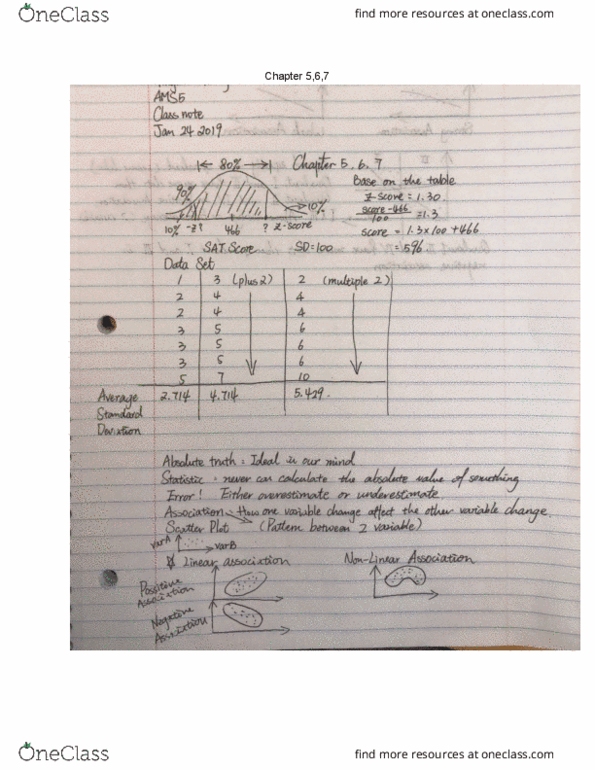 OneClass
find more resources at oneclass.com
Chapter 5,6,7
AMS5
Class note
Jan 24 2019
80%
Chapter 5, 6, 7
90%
10%
10% -z? 466 ? z-score
SAT Score SD=100
Base on the table
z-score = 1.30
score-466
100
=1.3
score = 1.3x100+466
=596
Data Set
1 3 (plus2) 2 (multiple 2)
2 4 4
2 4 4
3 5 6
3 5 6
3 5 6
5 7 10
Average 2.714 4.714 5.429
Standard
Deviation
Absolute truth = Ideal in our mind
Statistic = never can calculate the absolute value of something
Error! Either overestimate or underestimate.
Association = How one variable change affect the other variable change.
Scatter Plot (Pattern between 2 variable)
varA
varB
Linear association
Non-Linear Association
Positive
Association
Negative
Association
OneClass
find more resources at oneclass.com